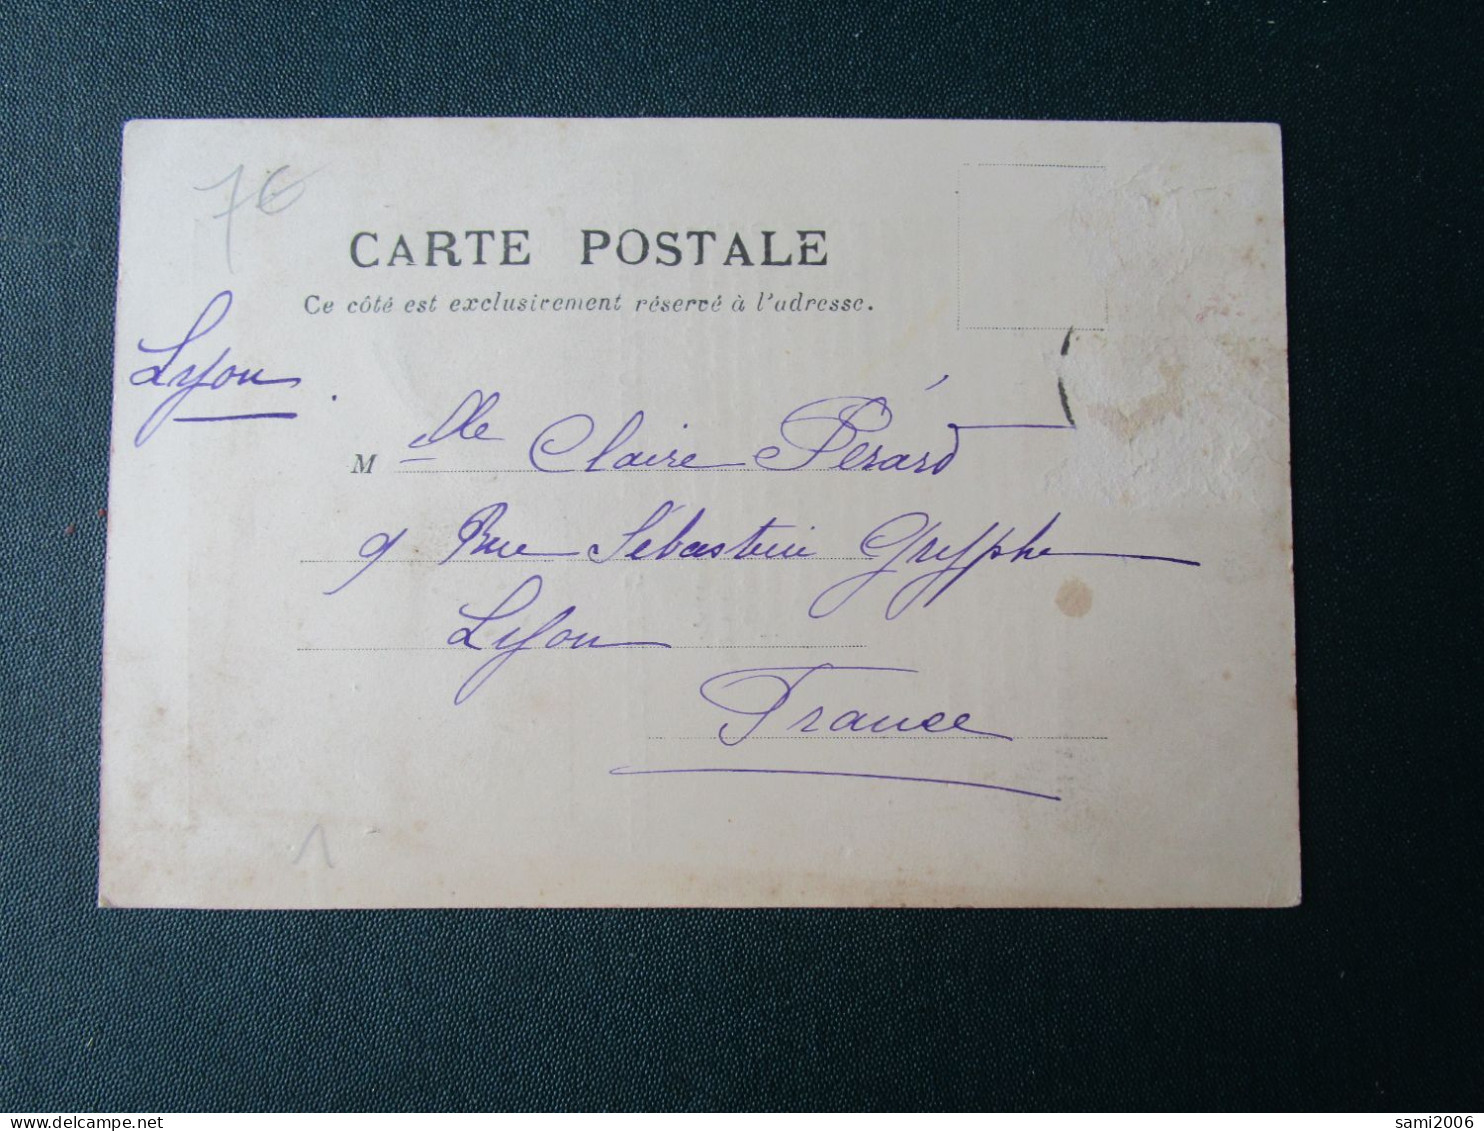 7€
CARTE POSTALE
Ce côté est exclusivement réservé à l'adresse.
Lyon
Mlle Claire Pérard
9 Rue Sébastien Gryphe
Lyon
France
1
delcampe.net
sami2006